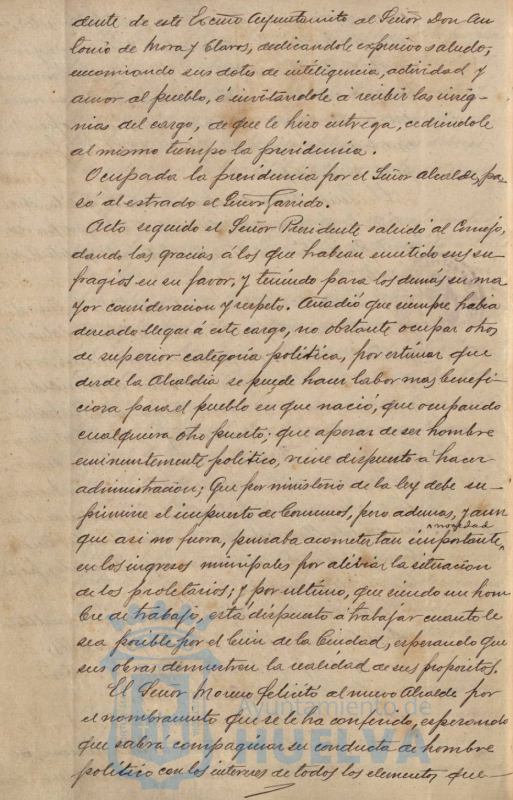 dente de este Excmo Ayuntamito al Señor Don An-
tonio de Mora y Claros, dedicandole expresivo saludo,
encomiando sus dotes de inteligencia, actividad y
amor al pueblo, é invitándole á recibir las insig-
nias del cargo, de que le hizo entrega, cediendole
al mismo tiempo la presidencia.
Ocupada la presidencia por el Señor Alcalde, pa-
só al estrado el Señor Garrido.
Acto seguido el Señor Presidente saludó al Concejo,
dando las gracias á los que habian emitido sus su-
fragios en su favor, y teniendo para los demás su ma
yor consideracion y respeto. Añadió que siempre habia
deseado llegar á este cargo, no obstante ocupar otros
de superior categoria politica, por estimar que
desde la Alcaldia se puede hacer labor mas benefi-
ciosa para el pueblo en que nació, que ocupando
cualquiera otro puesto; que apesar de ser hombre
eminentemente politico, viene dispuesto á hacer
administracion; Que por ministerio de la ley debe su-
primirse el impuesto de Consumos, pero ademas, y aun
que asi no fuera, pensaba acometer tan importante novedad
en los ingresos municipales por aliviar la situacion
de los proletarios; y por ultimo, que siendo un hom
bre de trabajo, está dispuesto á trabajar cuanto le
sea posible por el bien de la Ciudad, esperando que
sus obras demuestren la realidad de sus propositos.
El Señor Moreno felicitó al nuevo Alcalde por
el nombramiento que se le ha conferido, esperando
que sabrá compaginar su conducta de hombre
politico con los intereses de todos los elementos que
Ayuntamiento de
HUELVA